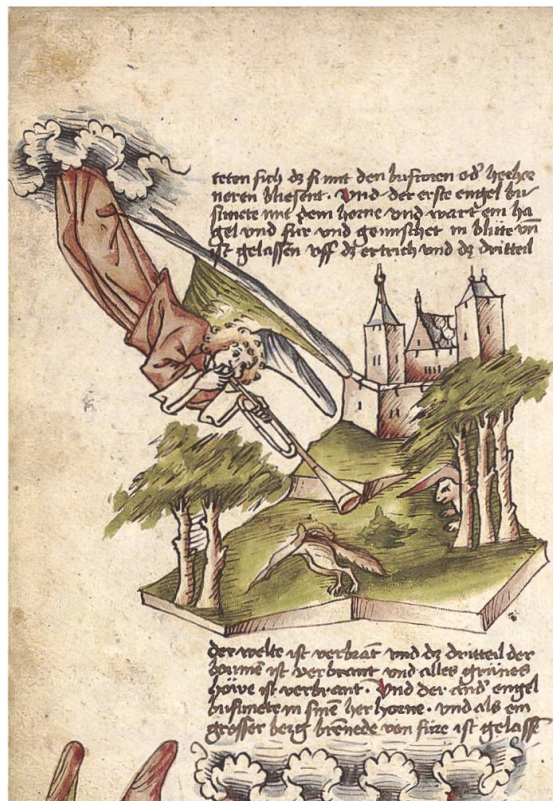 teten sich dz si mit den busunen od' herhor
neren bliesent. Und der erste engel bu
sunete mit dem horne vnd wart ein ha
gel vnd für vnd gemischet in blüte vn̄
ist gelassen vff dz ertrich vnd dz dritteil
der welte ist verbrāt vnd dz dritteil der
boumen ist verbrant vnd alles grünes
höwe ist verbrant. Und der and' engel
busunete in sinē her horne. vnd als ein
grosser berg brēnede von füre ist gelassē